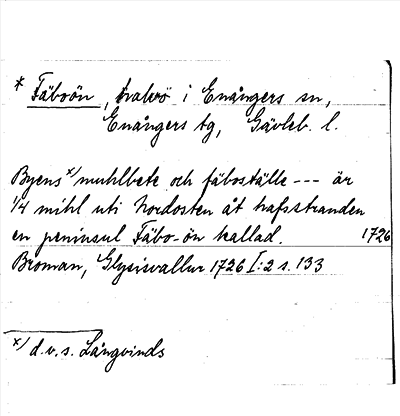 * Fäboön, halvö i Enångers sn,
Enångers tg, Gävleb. l.
Byens *) muhlbete och fäboställe --- är
1/4 mihl uti Nordosten åt hafsstranden
en peninsul Fäbo-ön kallad. 1726
Broman, Glysisvallur 1726 I:2 s. 133
*) d.v.s. Långvinds